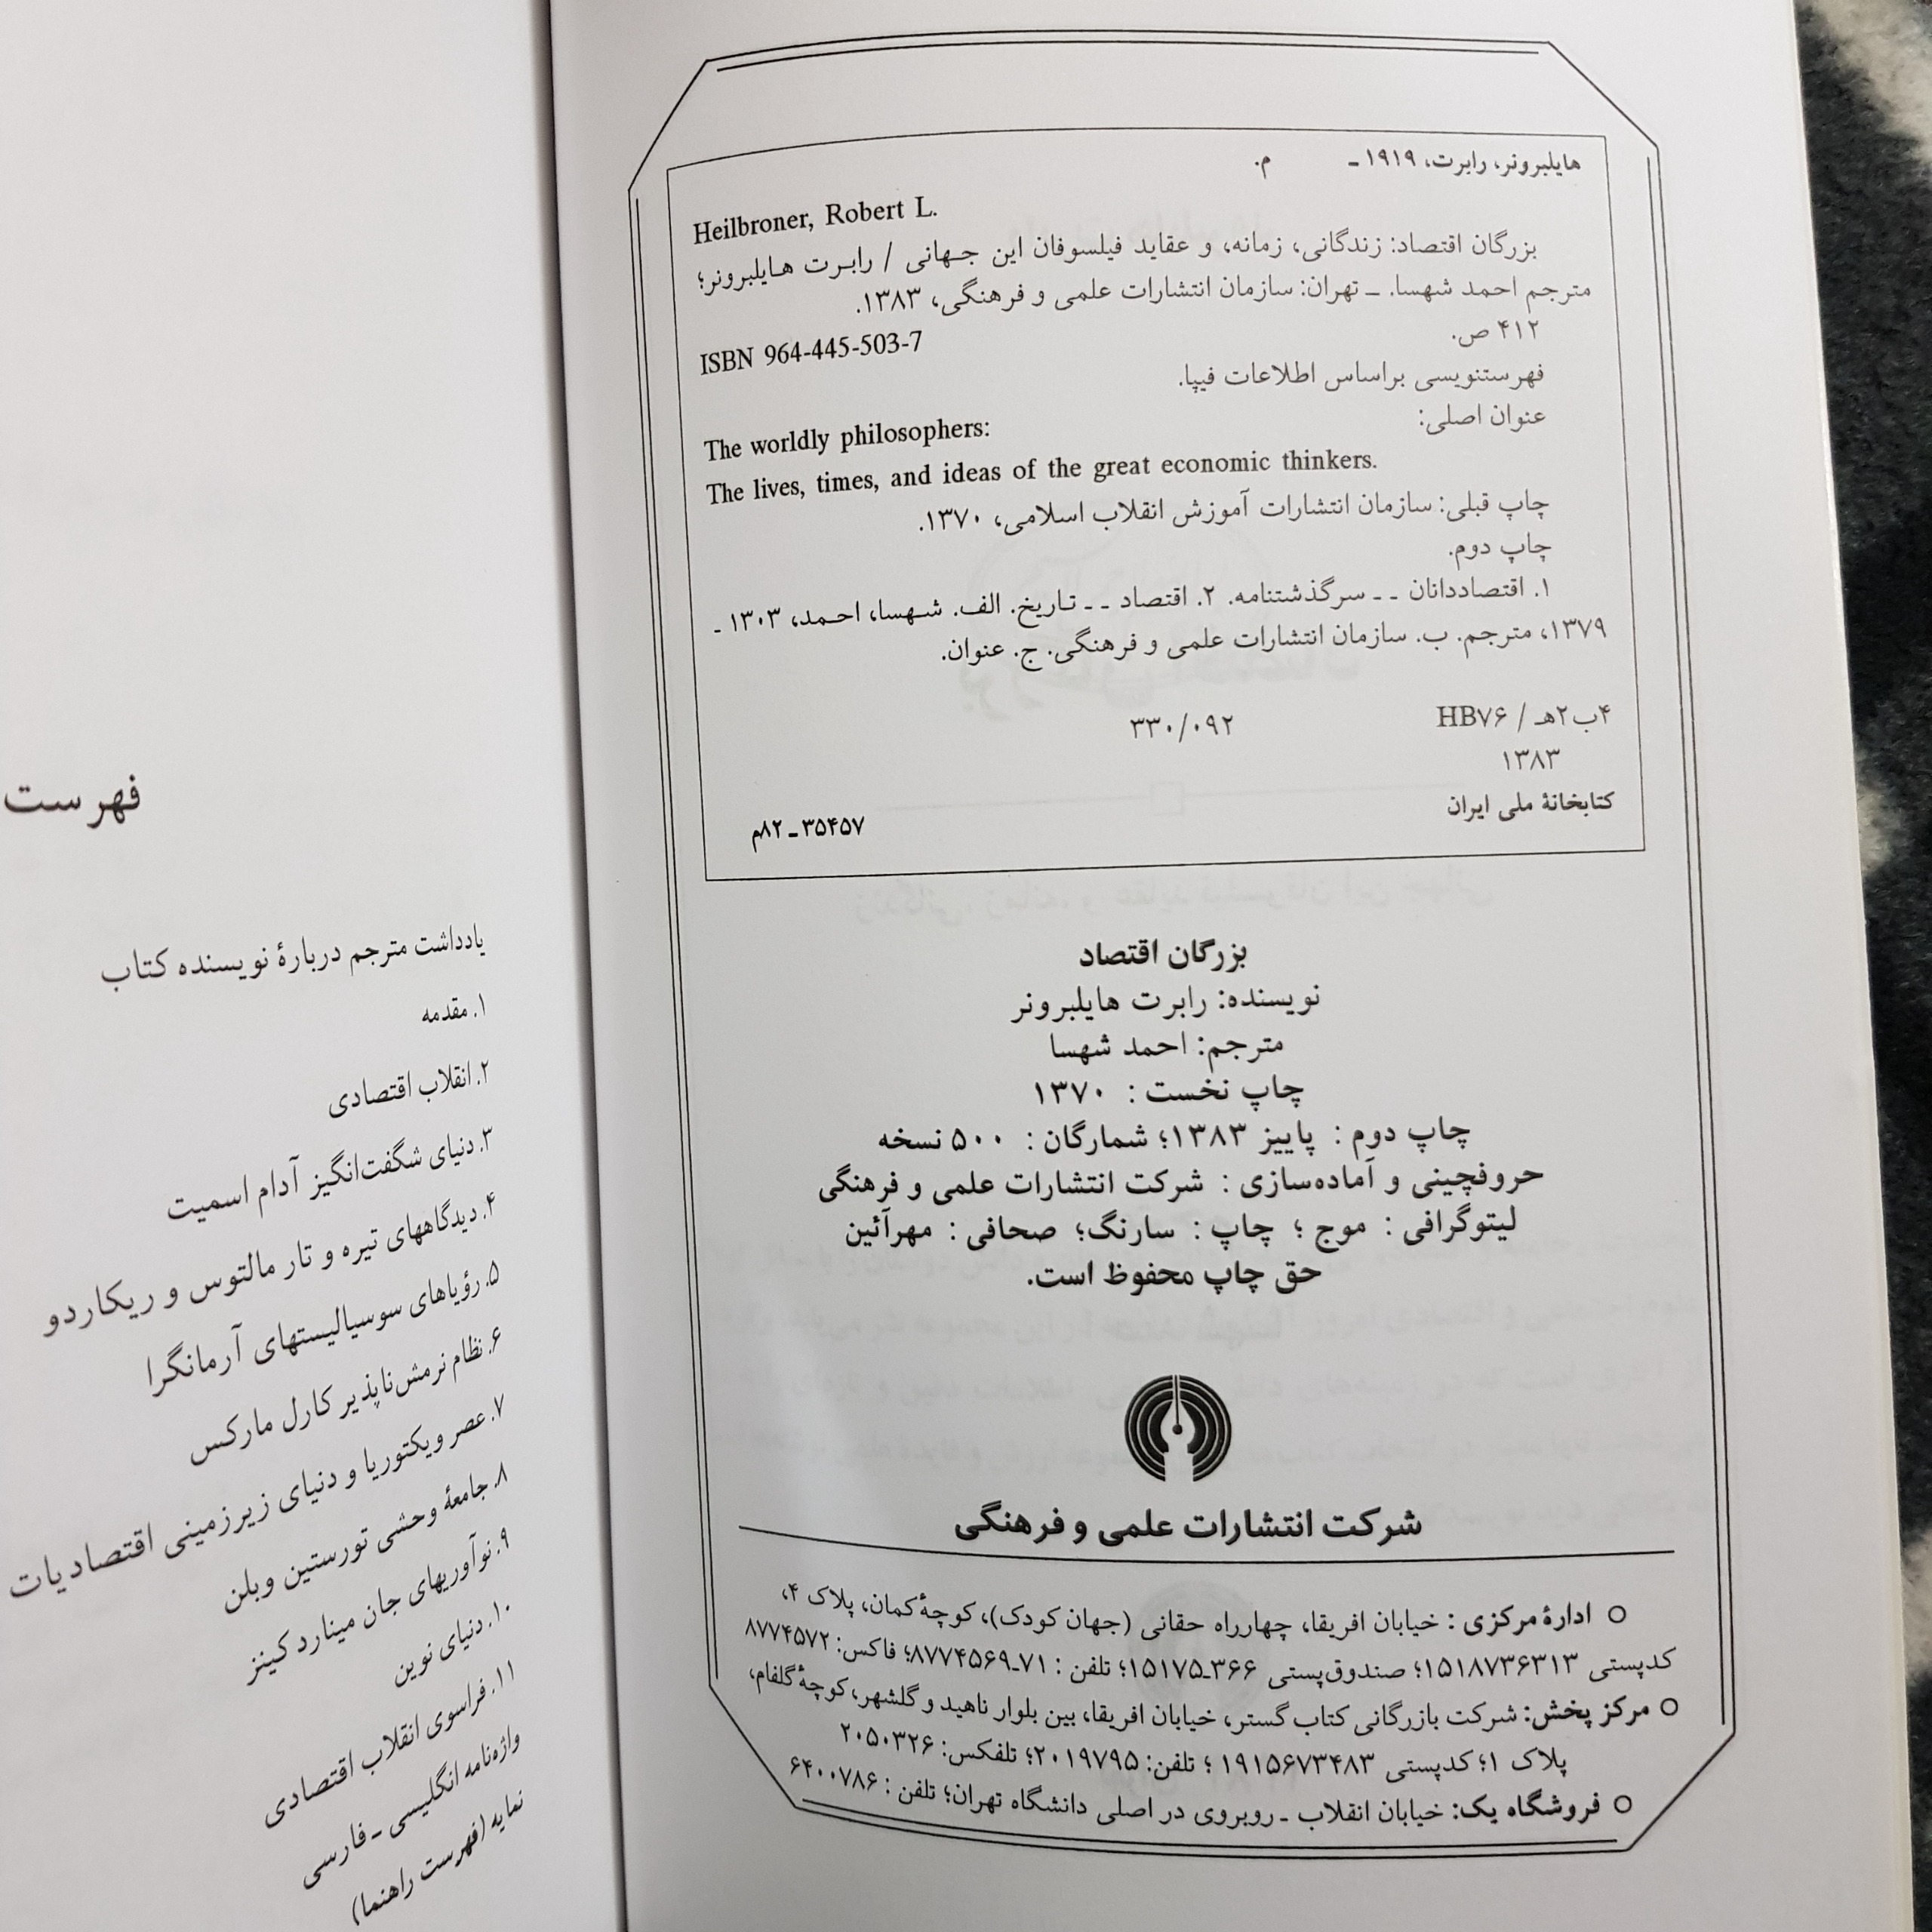 هایلبرونر، رابرت، ۱۹۱۹ ـ م.
Heilbroner, Robert L.
بزرگان اقتصاد: زندگانی، زمانه، و عقاید فیلسوفان این جهانی / رابرت هایلبرونر؛
مترجم احمد شهسا. ـ تهران: سازمان انتشارات علمی و فرهنگی، ۱۳۸۳.
۴۱۲ ص.
ISBN 964-445-503-7
فهرستنویسی براساس اطلاعات فیپا.
عنوان اصلی:
The worldly philosophers:
The lives, times, and ideas of the great economic thinkers.
چاپ قبلی: سازمان انتشارات آموزش انقلاب اسلامی، ۱۳۷۰.
چاپ دوم.
۱. اقتصاددانان ـ ـ سرگذشتنامه. ۲. اقتصاد ـ ـ تاریخ. الف. شهسا، احمد، ۱۳۰۳ ـ
۱۳۷۹، مترجم. ب. سازمان انتشارات علمی و فرهنگی. ج. عنوان.
۴ب۲هـ / HB۷۶ ۳۳۰/۰۹۲
۱۳۸۳
کتابخانهٔ ملی ایران
۳۵۴۵۷ ـ ۸۲م
بزرگان اقتصاد
نویسنده: رابرت هایلبرونر
مترجم: احمد شهسا
چاپ نخست : ۱۳۷۰
چاپ دوم : پاییز ۱۳۸۳؛ شمارگان : ۵۰۰ نسخه
حروفچینی و آماده‌سازی : شرکت انتشارات علمی و فرهنگی
لیتوگرافی : موج ؛ چاپ : سارنگ؛ صحافی : مهرآئین
حق چاپ محفوظ است.
شرکت انتشارات علمی و فرهنگی
○ ادارهٔ مرکزی : خیابان افریقا، چهارراه حقانی (جهان کودک)، کوچهٔ کمان، پلاک ۴،
کدپستی ۱۵۱۸۷۳۶۳۱۳؛ صندوق‌پستی ۳۶۶ـ۱۵۱۷۵؛ تلفن : ۷۱ـ۸۷۷۴۵۶۹؛ فاکس: ۸۷۷۴۵۷۲
○ مرکز پخش: شرکت بازرگانی کتاب گستر، خیابان افریقا، بین بلوار ناهید و گلشهر، کوچهٔ گلفام،
پلاک ۱؛ کدپستی ۱۹۱۵۶۷۳۴۸۳ ؛ تلفن: ۲۰۱۹۷۹۵؛ تلفکس: ۲۰۵۰۳۲۶
○ فروشگاه یک: خیابان انقلاب ـ روبروی در اصلی دانشگاه تهران؛ تلفن : ۶۴۰۰۷۸۶
فهرست
یادداشت مترجم دربارهٔ نویسنده کتاب
۱. مقدمه
۲. انقلاب اقتصادی
۳. دنیای شگفت‌انگیز آدام اسمیت
۴. دیدگاههای تیره و تار مالتوس و ریکاردو
۵. رؤیاهای سوسیالیستهای آرمانگرا
۶. نظام نرمش‌ناپذیر کارل مارکس
۷. عصر ویکتوریا و دنیای زیرزمینی اقتصادیات
۸. جامعهٔ وحشی تورستین وبلن
۹. نوآوریهای جان مینارد کینز
۱۰. دنیای نوین
۱۱. فراسوی انقلاب اقتصادی
واژه‌نامه انگلیسی ـ فارسی
نمایه (فهرست راهنما)